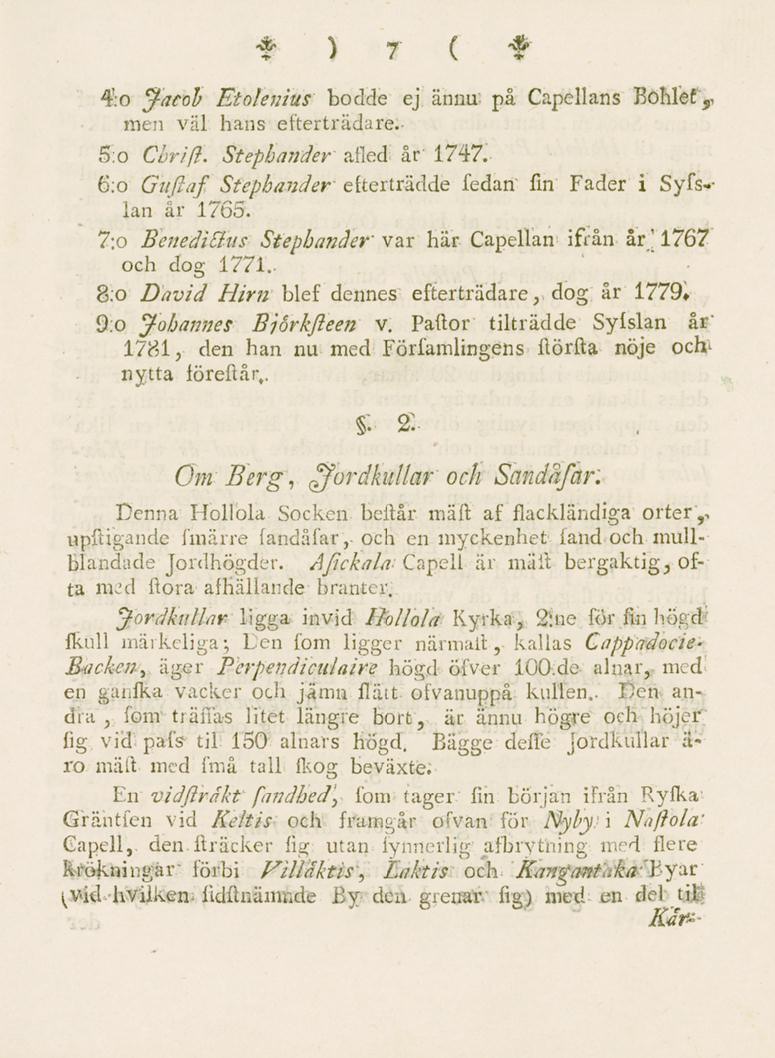 ) 7 (
4:o Jacob Etolenius bodde ej ännu på Capellans Bohlet,
men väl hans efterträdare.
5:o Chriſt. Stephander afled år 1747.
6:o Guſtaf Stephander efterträdde ſedan ſin Fader i Syſs-
lan år 1765.
7:o Benedictus Stephander var här Capellan ifrån år 1767
och dog 1771.
8:o David Hirn blef dennes efterträdare, dog år 1779.
9:o Johannes Björkſteen v. Paſtor tilträdde Syſslan år
1781, den han nu med Förſamlingens ſtörſta nöje och
nytta föreſtår.
§. 2.
Om Berg, Jordkullar och Sandåſar.
Denna Hollola Socken beſtår mäſt af flackländiga orter,
upſtigande ſmärre ſandåſar, och en myckenhet ſand och mull-
blandade Jordhögder. Aſickala Capell är mäſt bergaktig, of-
ta med ſtora afhällande branter.
Jordkullar ligga invid Hollola Kyrka, 2:ne för ſin högd
ſkull märkeliga; Den ſom ligger närmaſt, kallas Cappadocie-
Backen, äger Perpendiculaire högd öfver 100:de alnar, med
en ganſka vacker och jämn ſlätt ofvanuppå kullen. Den an-
dra, ſom träffas litet längre bort, är ännu högre och höjer
ſig vid paſs til 150 alnars högd. Bägge deſſe Jordkullar ä-
ro mäſt med ſmå tall ſkog beväxte.
En vidſträkt ſandhed, ſom tager ſin början ifrån Ryſka
Gräntſen vid Keltis och framgår ofvan för Nyby i Naſtola
Capell, den ſträcker ſig utan ſynnerlig afbrytning med flere
krökningar förbi Villäktis, Laktis och Kangantaka Byar
(vid hvilken ſidſtnämnde By den grenar ſig) med en del til
Kär-